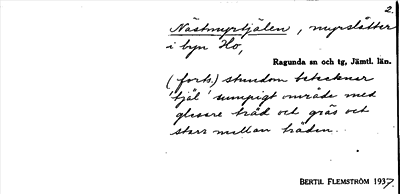 2.
Nästmyrtjälen, myrslåtter
i byn Ho,
Ragunda sn och tg, Jämtl. län.
(forts.) stundom betecknar
'tjäl' sumpigt område med
glesare träd och gräs och
starr mellan träden.
BERTIL FLEMSTRÖM 1937.